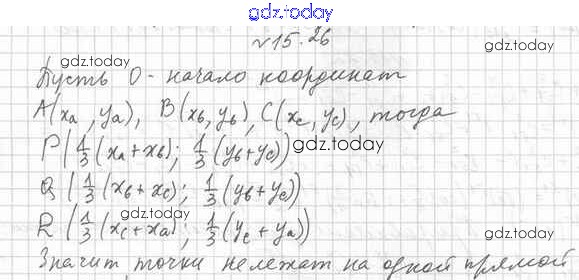 gdz.today
№15.26
gdz.today gdz.today
Пусть O - начало координат
A(xa, ya), B(xb, yb), C(xc, yc), тогда
P(1/3(xa+xb); 1/3(yb+yc)) gdz.today
Q(1/3(xb+xc); 1/3(yb+yc))
gdz.today
R(1/3(xc+xa); 1/3(yc+ya)) gdz.today
Значит точки не лежат на одной прямой